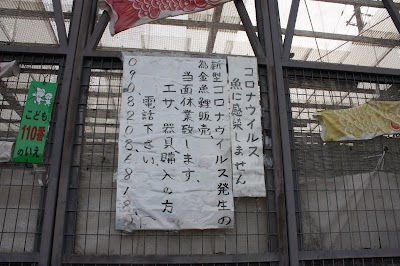 コロナウイルス
魚に感染しません
新型コロナウイルス発生の
為金魚鯉販売、
当面休業致します、
エサ、器具購入の方
電話下さい、
こども
110番
のいえ